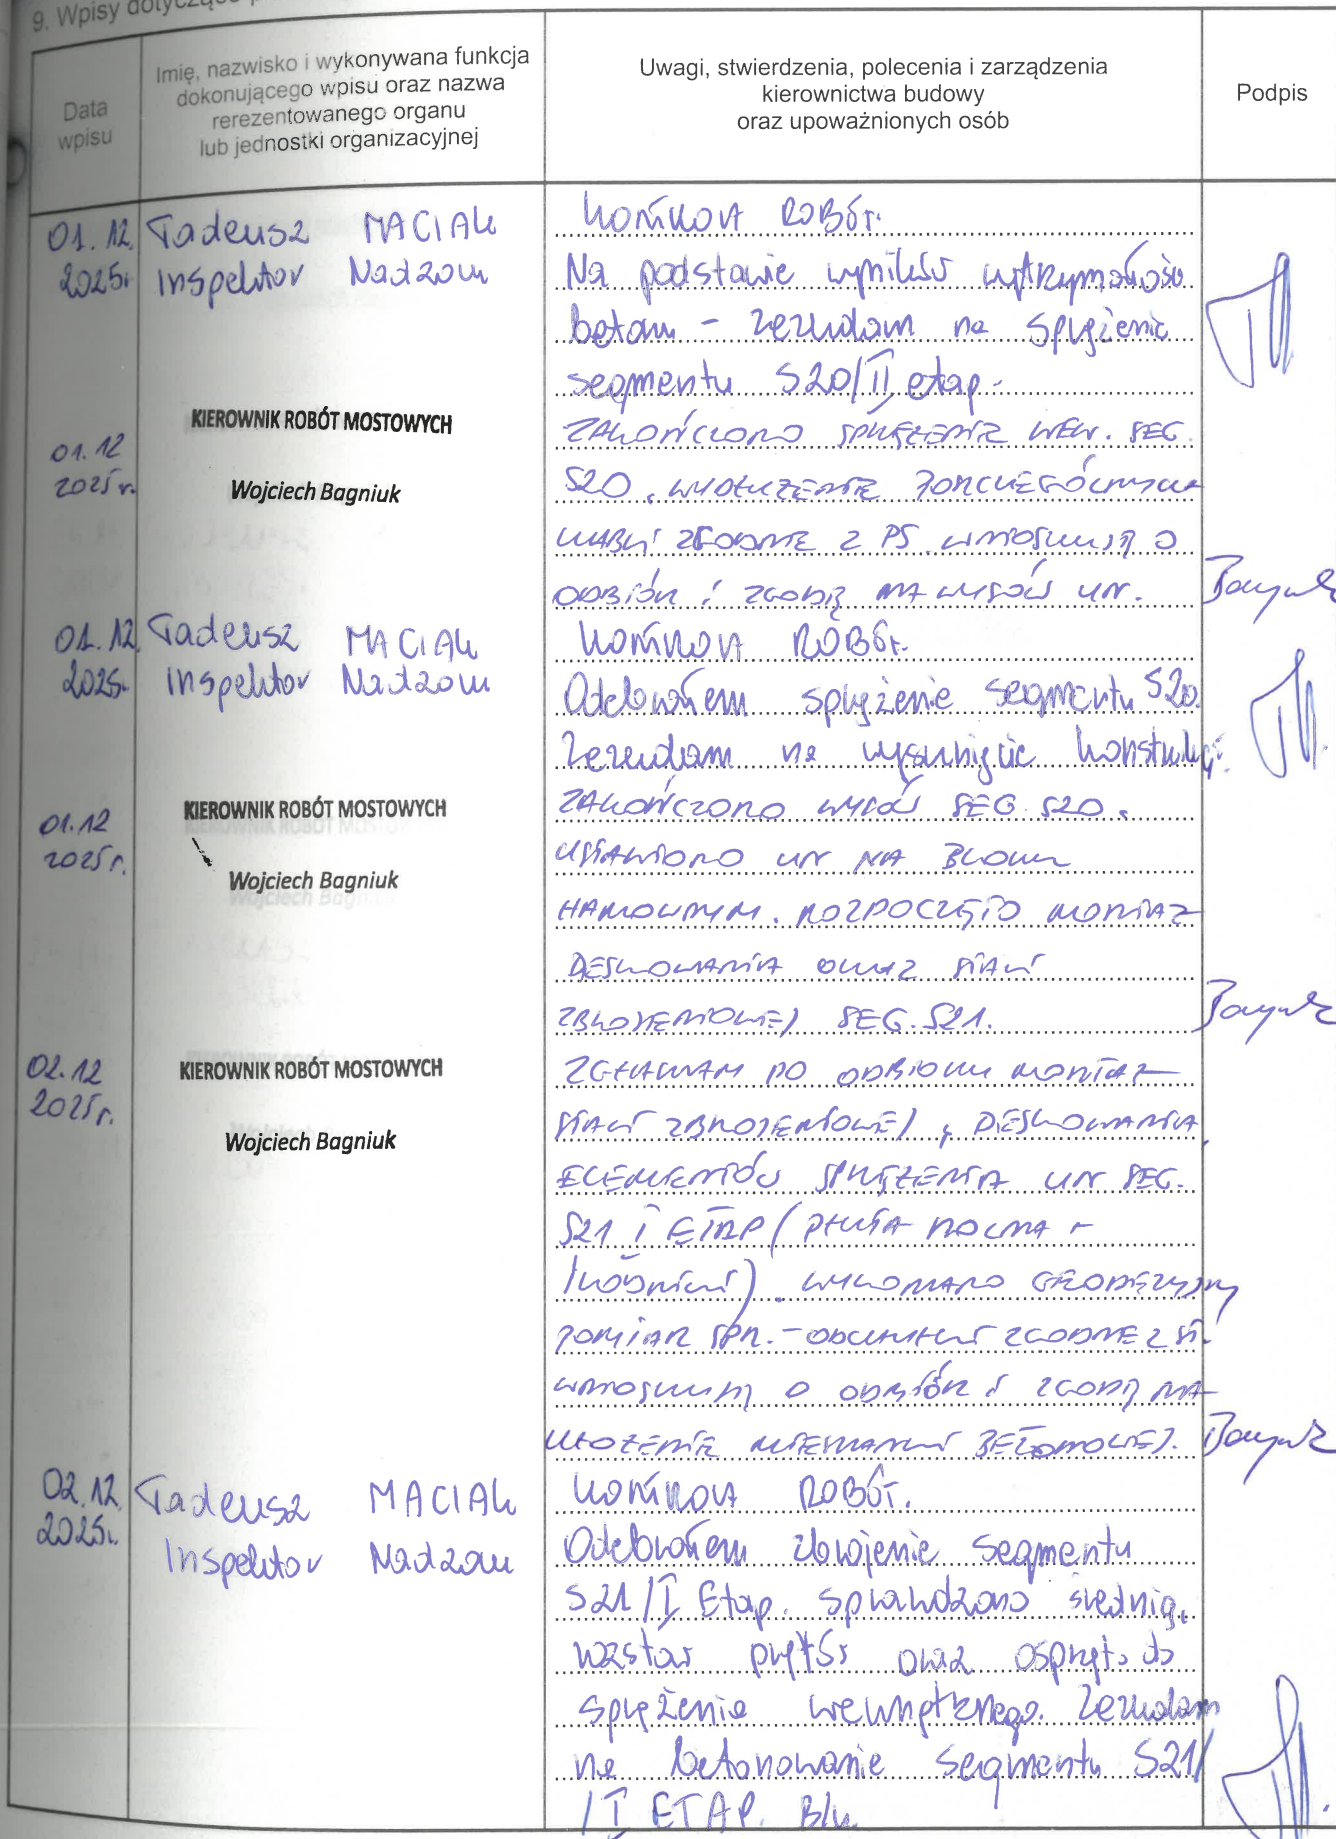 9. Wpisy dotyczące
Data wpisu
Imię, nazwisko i wykonywana funkcja
dokonującego wpisu oraz nazwa
rerezentowanego organu
lub jednostki organizacyjnej
Uwagi, stwierdzenia, polecenia i zarządzenia
kierownictwa budowy
oraz upoważnionych osób
Podpis
01.12. 2025r.
Tadeusz MACIAK
Inspektor Nadzoru
ROBÓT.
Na podstawie wyników wytrzymałości
betonu - zezwalam na sprężenie
segmentu S20/II etap.
01.12 2025r.
KIEROWNIK ROBÓT MOSTOWYCH
Wojciech Bagniuk
ZAKOŃCZONO SPRĘŻENIE WEW. SEG.
S20. WYDŁUŻENIE POSZCZEGÓLNYCH
KABLI ZGODNE Z PS. WNIOSKUJĘ O
ODBIÓR I ZGODĘ NA WYSÓW UN.
01.12. 2025r.
Tadeusz MACIAK
Inspektor Nadzoru
ROBÓT.
Odebrałem sprężenie segmentu S20.
Zezwalam na wysunięcie konstrukcji.
01.12 2025r.
KIEROWNIK ROBÓT MOSTOWYCH
Wojciech Bagniuk
ZAKOŃCZONO WYSÓW SEG. S20.
USTAWIONO UN NA BLOKU
HAMOWNYM. ROZPOCZĘTO MONTAŻ
DESKOWANIA ORAZ STALI
ZBROJENIOWEJ SEG. S21.
02.12 2025r.
KIEROWNIK ROBÓT MOSTOWYCH
Wojciech Bagniuk
ZGŁASZAM DO ODBIORU MONTAŻ
STALI ZBROJENIOWEJ, DESKOWANIA,
ELEMENTÓW SPRĘŻENIA UN SEG.
S21 I ETAP (PŁYTA DOLNA +
ŚRODNIKI). WYKONANO GEODEZYJNY
POMIAR SPR. - ZGODNE Z
WNIOSKUJĘ O ODBIÓR I ZGODĘ NA
UŁOŻENIE MIESZANKI BETONOWEJ.
02.12. 2025r.
Tadeusz MACIAK
Inspektor Nadzoru
ROBÓT.
Odebrałem zbrojenie segmentu
S21/I Etap. Sprawdzono średnię,
rozstaw prętów oraz osprzęt do
sprężenia wewnętrznego. Zezwalam
na betonowanie segmentu S21/
/I ETAP.